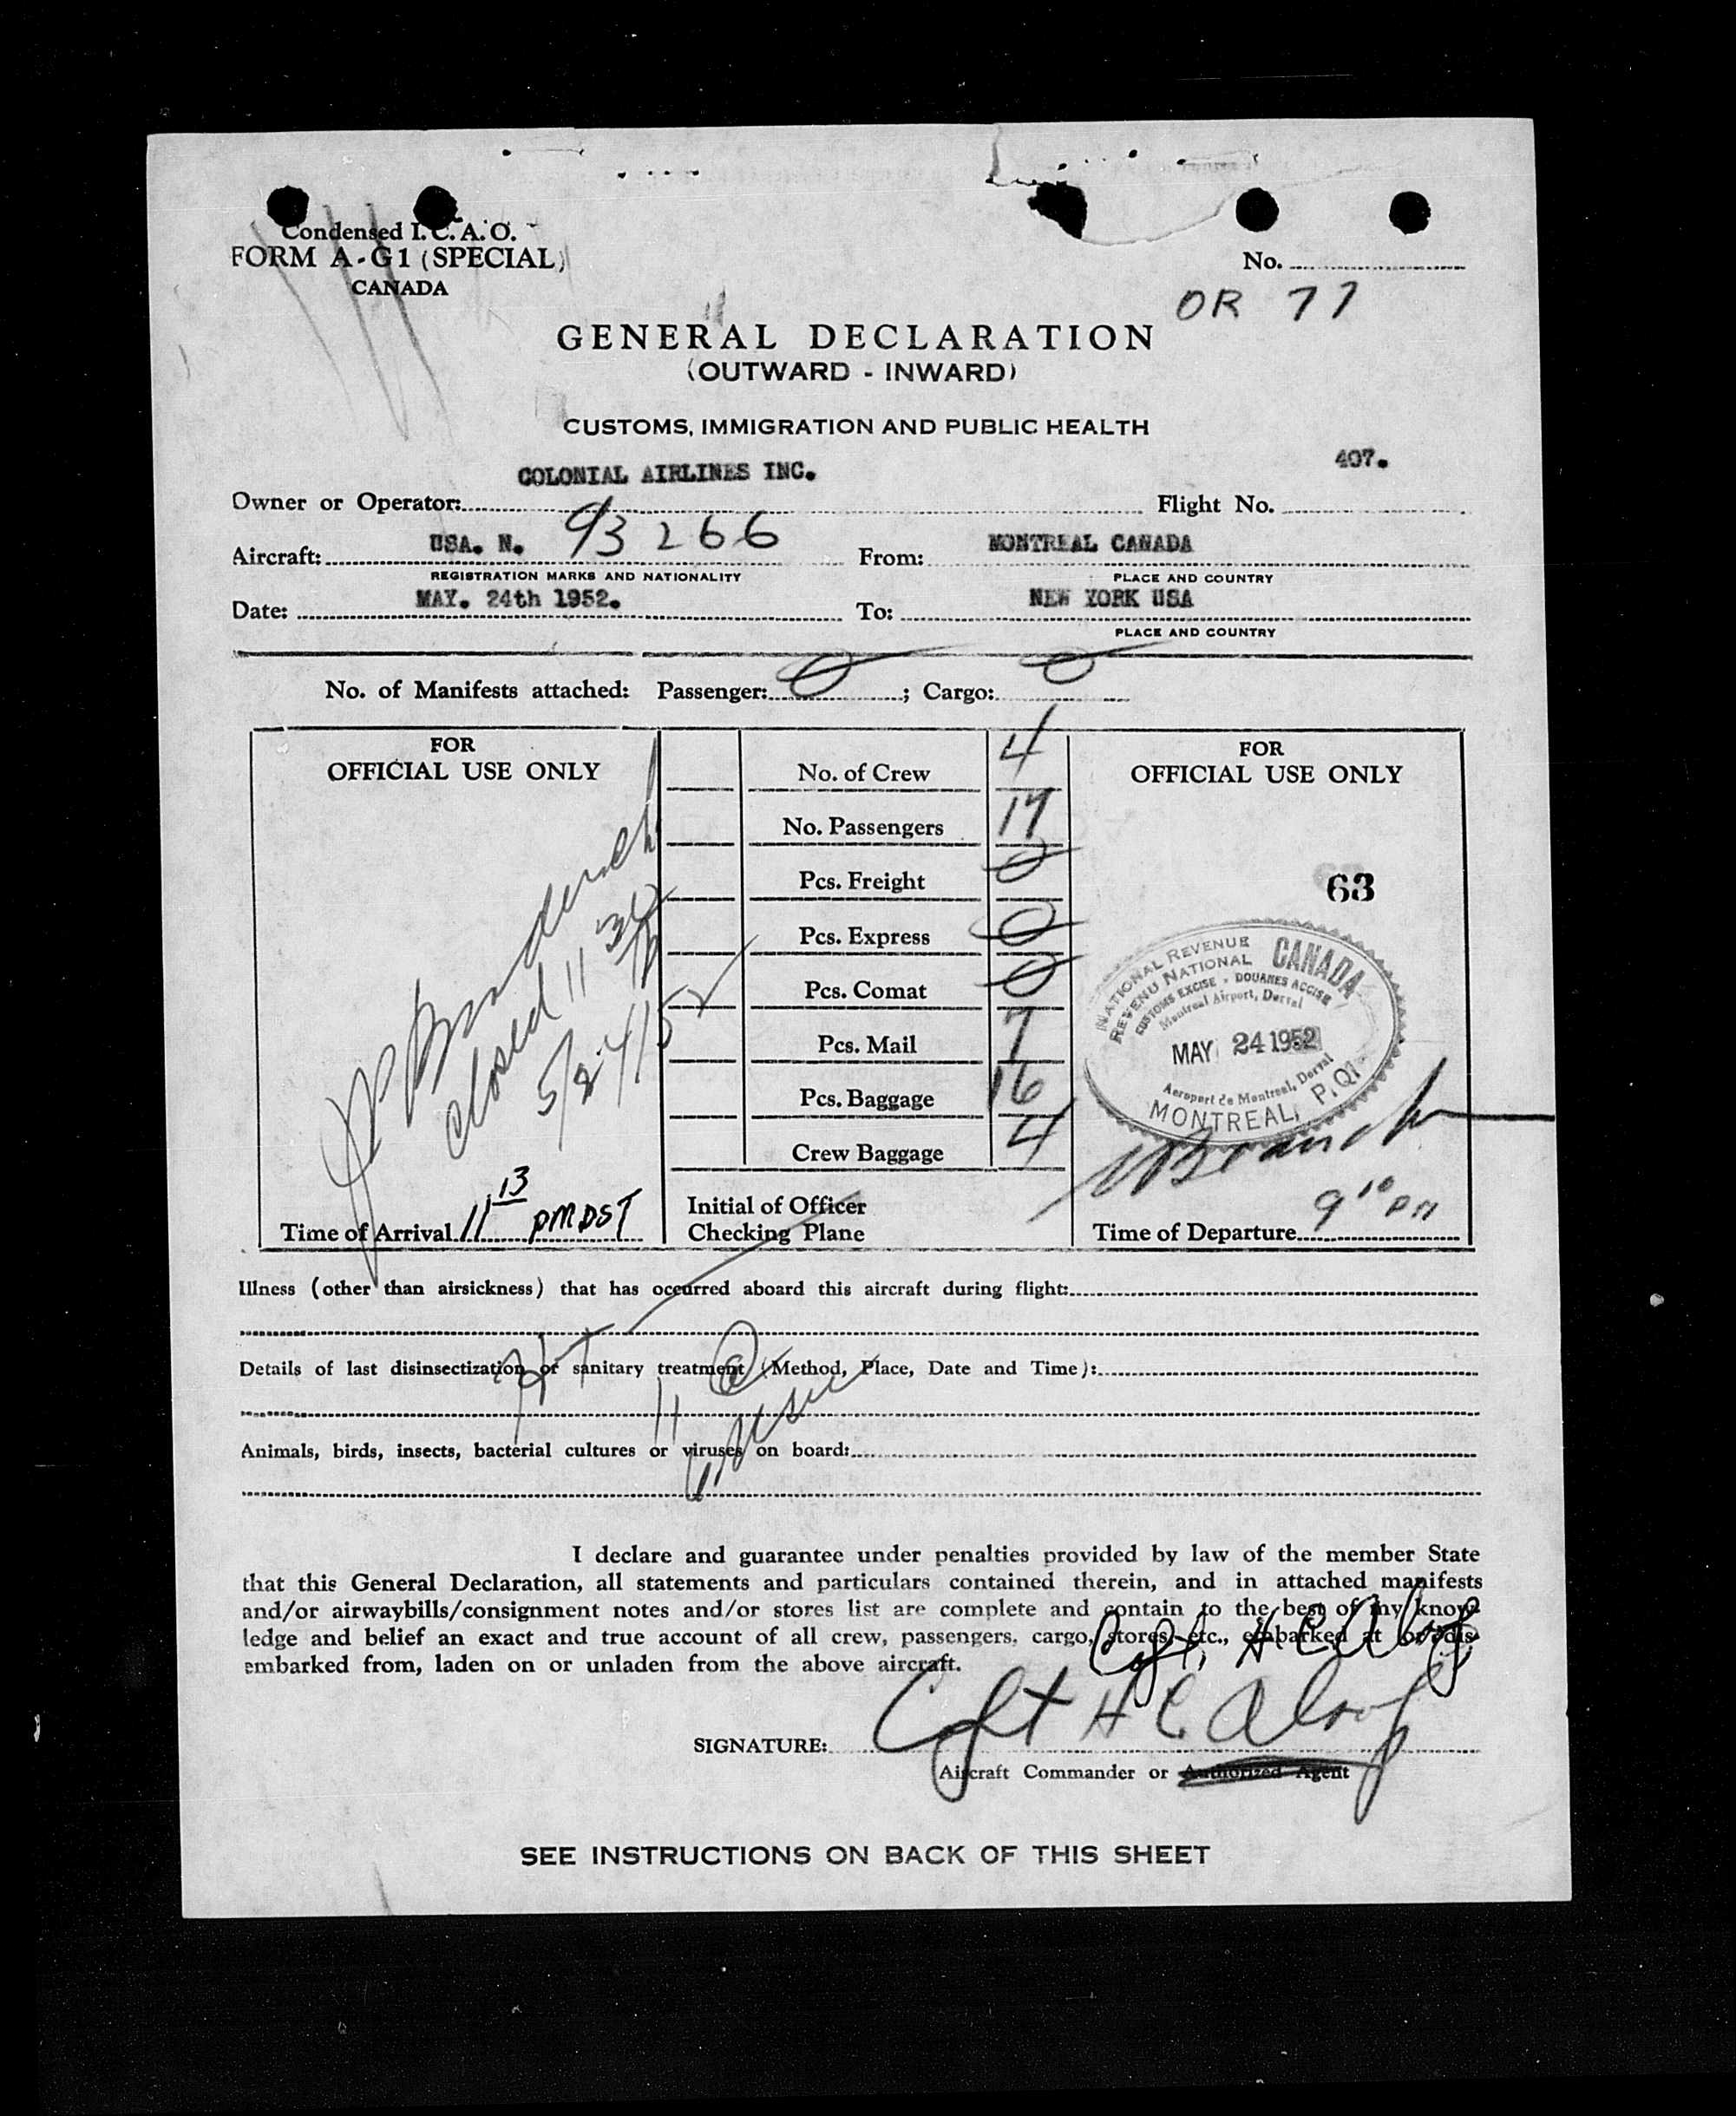 Condensed I.C.A.O.
FORM A-G1 (SPECIAL)
CANADA
No.
OR 77
GENERAL DECLARATION
(OUTWARD - INWARD)
CUSTOMS, IMMIGRATION AND PUBLIC HEALTH
COLONIAL AIRLINES INC. 407.
Owner or Operator: Flight No.
Aircraft: USA. N. 93266 From: MONTREAL CANADA
REGISTRATION MARKS AND NATIONALITY PLACE AND COUNTRY
Date: MAY. 24th 1952. To: NEW YORK USA
PLACE AND COUNTRY
No. of Manifests attached: Passenger: 0 ; Cargo: 0
FOR
OFFICIAL USE ONLY
closed 11 30
5/24/52
Time of Arrival 11 13 PM DST
No. of Crew 4
No. Passengers 17
Pcs. Freight 0
Pcs. Express 0
Pcs. Comat 0
Pcs. Mail 7
Pcs. Baggage 16
Crew Baggage 4
Initial of Officer
Checking Plane
FOR
OFFICIAL USE ONLY
63
NATIONAL REVENUE CANADA
REVENU NATIONAL
CUSTOMS EXCISE - DOUANES ACCISE
Montreal Airport, Dorval
MAY 24 1952
Aeroport de Montreal, Dorval
MONTREAL, P.Q.
Time of Departure 9 10 PM
Illness (other than airsickness) that has occurred aboard this aircraft during flight:
Details of last disinsectization or sanitary treatment (Method, Place, Date and Time):
Animals, birds, insects, bacterial cultures or viruses on board:
I declare and guarantee under penalties provided by law of the member State
that this General Declaration, all statements and particulars contained therein, and in attached manifests
and/or airwaybills/consignment notes and/or stores list are complete and contain to the best of my know-
ledge and belief an exact and true account of all crew, passengers, cargo, stores, etc., embarked at or dis-
embarked from, laden on or unladen from the above aircraft.
Capt. H C
SIGNATURE: Capt H C
Aircraft Commander or Authorized Agent
SEE INSTRUCTIONS ON BACK OF THIS SHEET